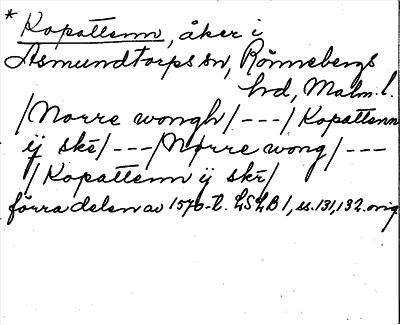 * Kopattenn, åker i
Asmundtorps sn, Rönnebergs
hd, Malm. l.
/Norre wongh/---/Kopattenn
ij skē/---/Norre wong/---
/Kopattenn ij skē/
förra delen av 1570-t. LSLB 1, ss. 131, 132. orig